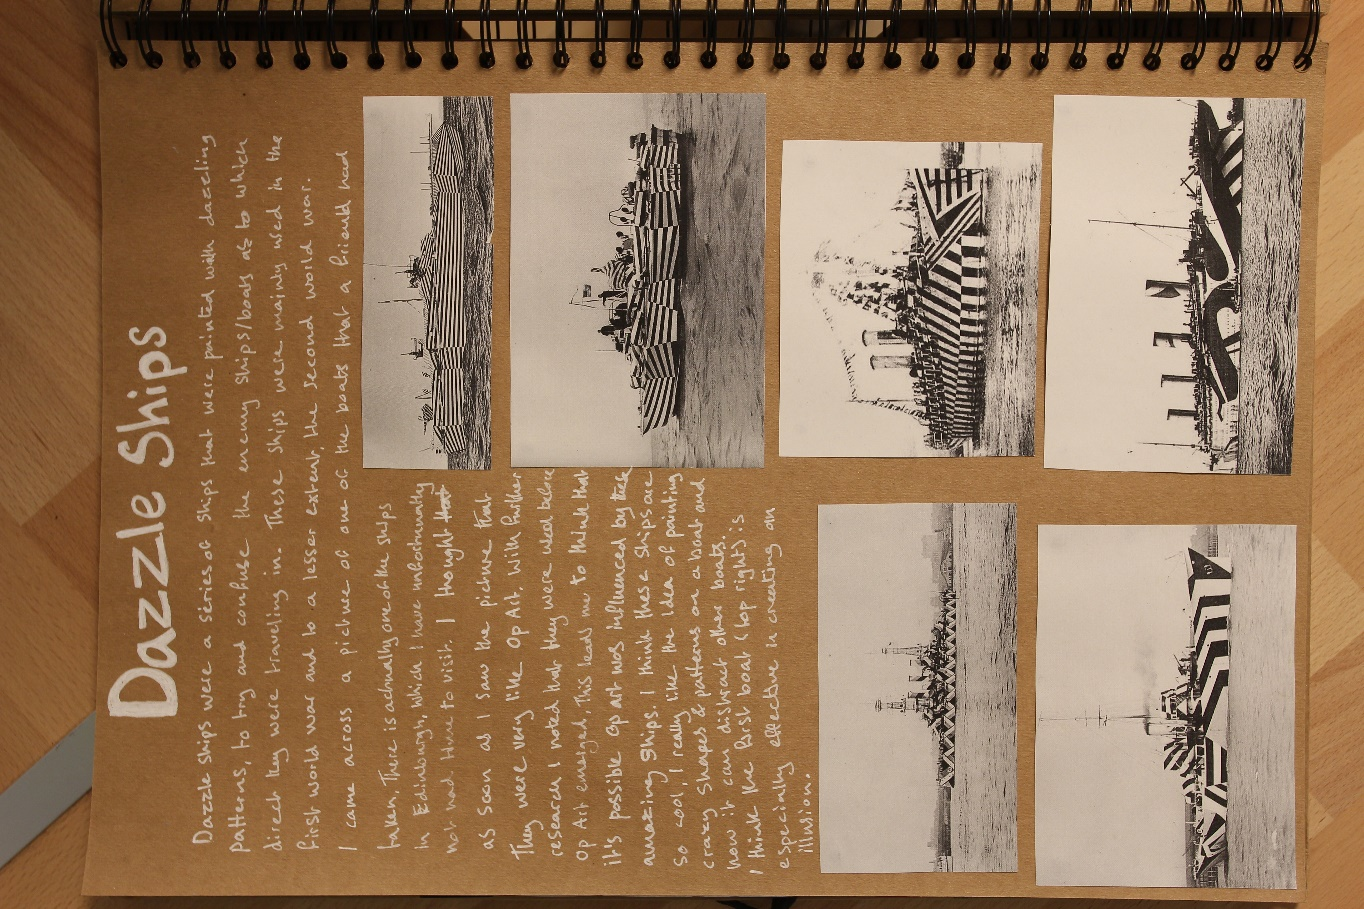 Dazzle Ships
Dazzle ships were a series of ships that were painted with dazzling
patterns, to try and confuse the enemy ships/boats as to which
direct they were traveling in. These ships were mainy used in the
first world war and to a lesser extent, the second world war.
I came across a picture of one of the boats that a friend had
taken, There is actually one of the ships
in Edinburgh, which I have unfortunatly
not had time to visit. I thought that
as soon as I saw the picture that
They were very like Op Art. With further
research I noted that they were used before
Op Art emerged. This leads me to think that
it's possible op art was influenced by these
amazing ships. I think these ships are
so cool, I really like the idea of painting
crazy shapes & patterns on a boat and
how it can distract other boats.
I think the first boat (top right) is
especially effective in creating an
illusion.